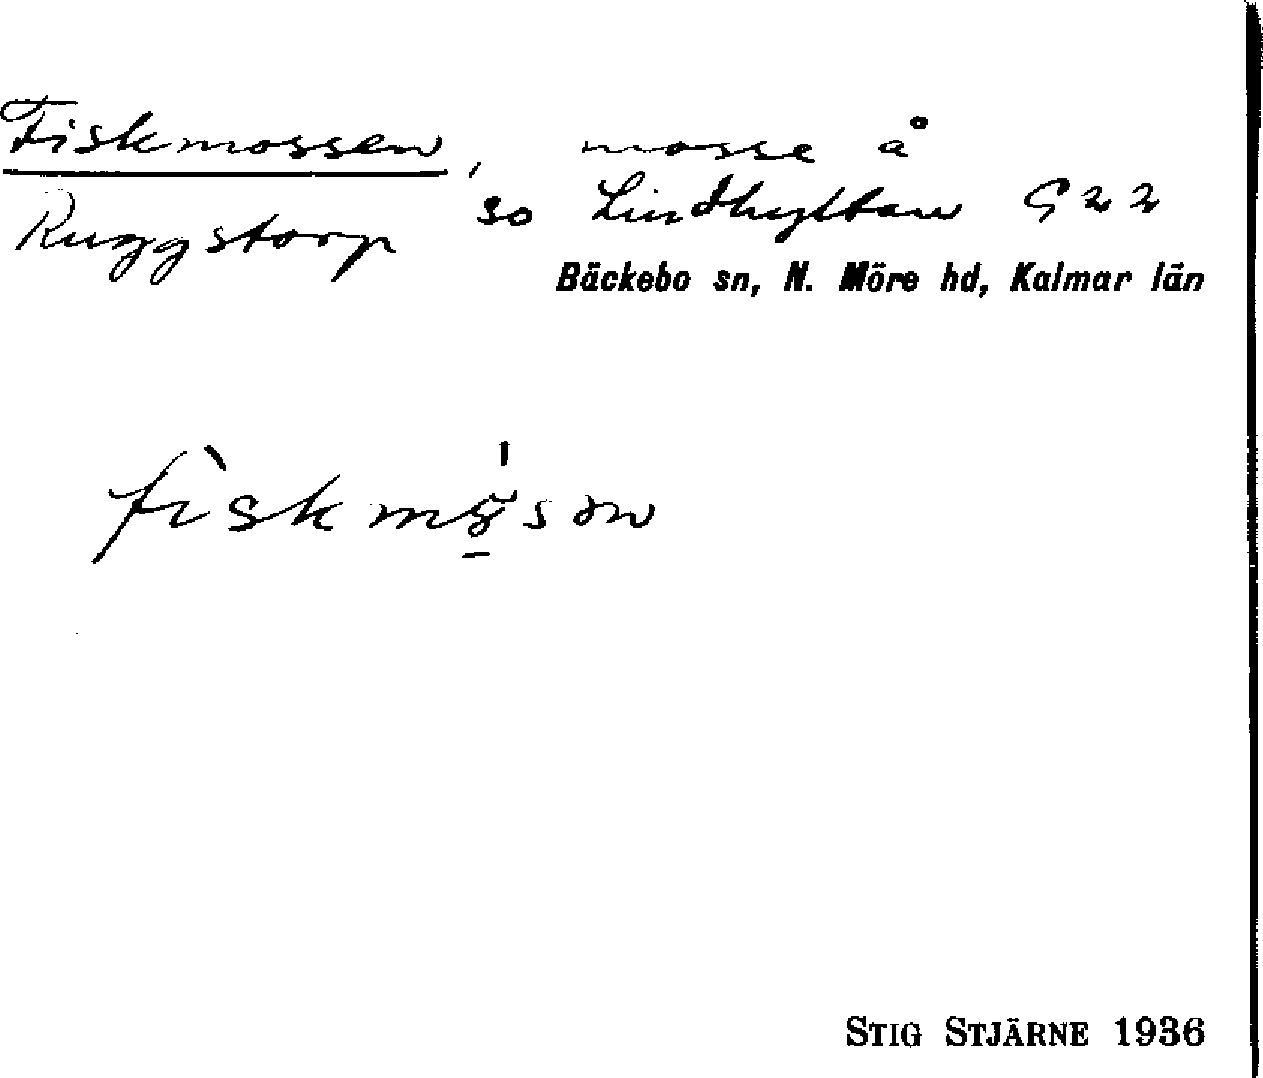 Fiskmossen, mosse å
Ruggstorp so Lindhyttan G 22
Bäckebo sn, N. Möre hd, Kalmar län
STIG STJÄRNE 1936